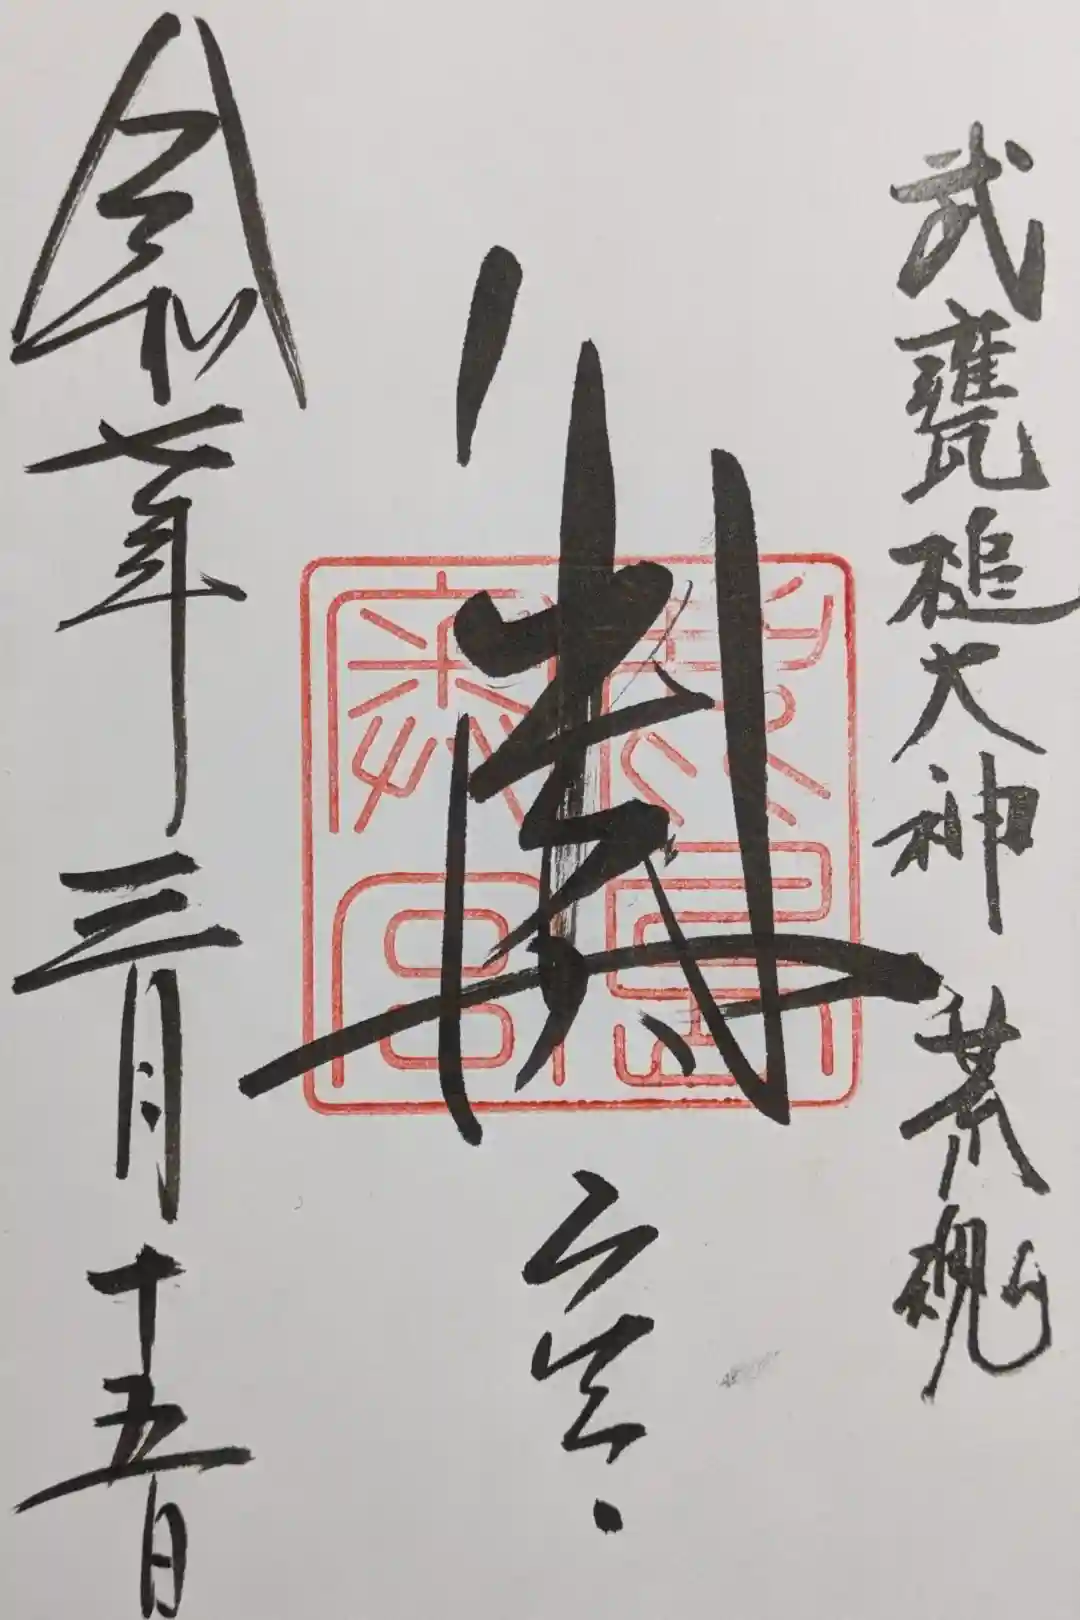 武甕槌大神 荒魂
奥宮
鹿島
奥宮
令和七年三月十五日